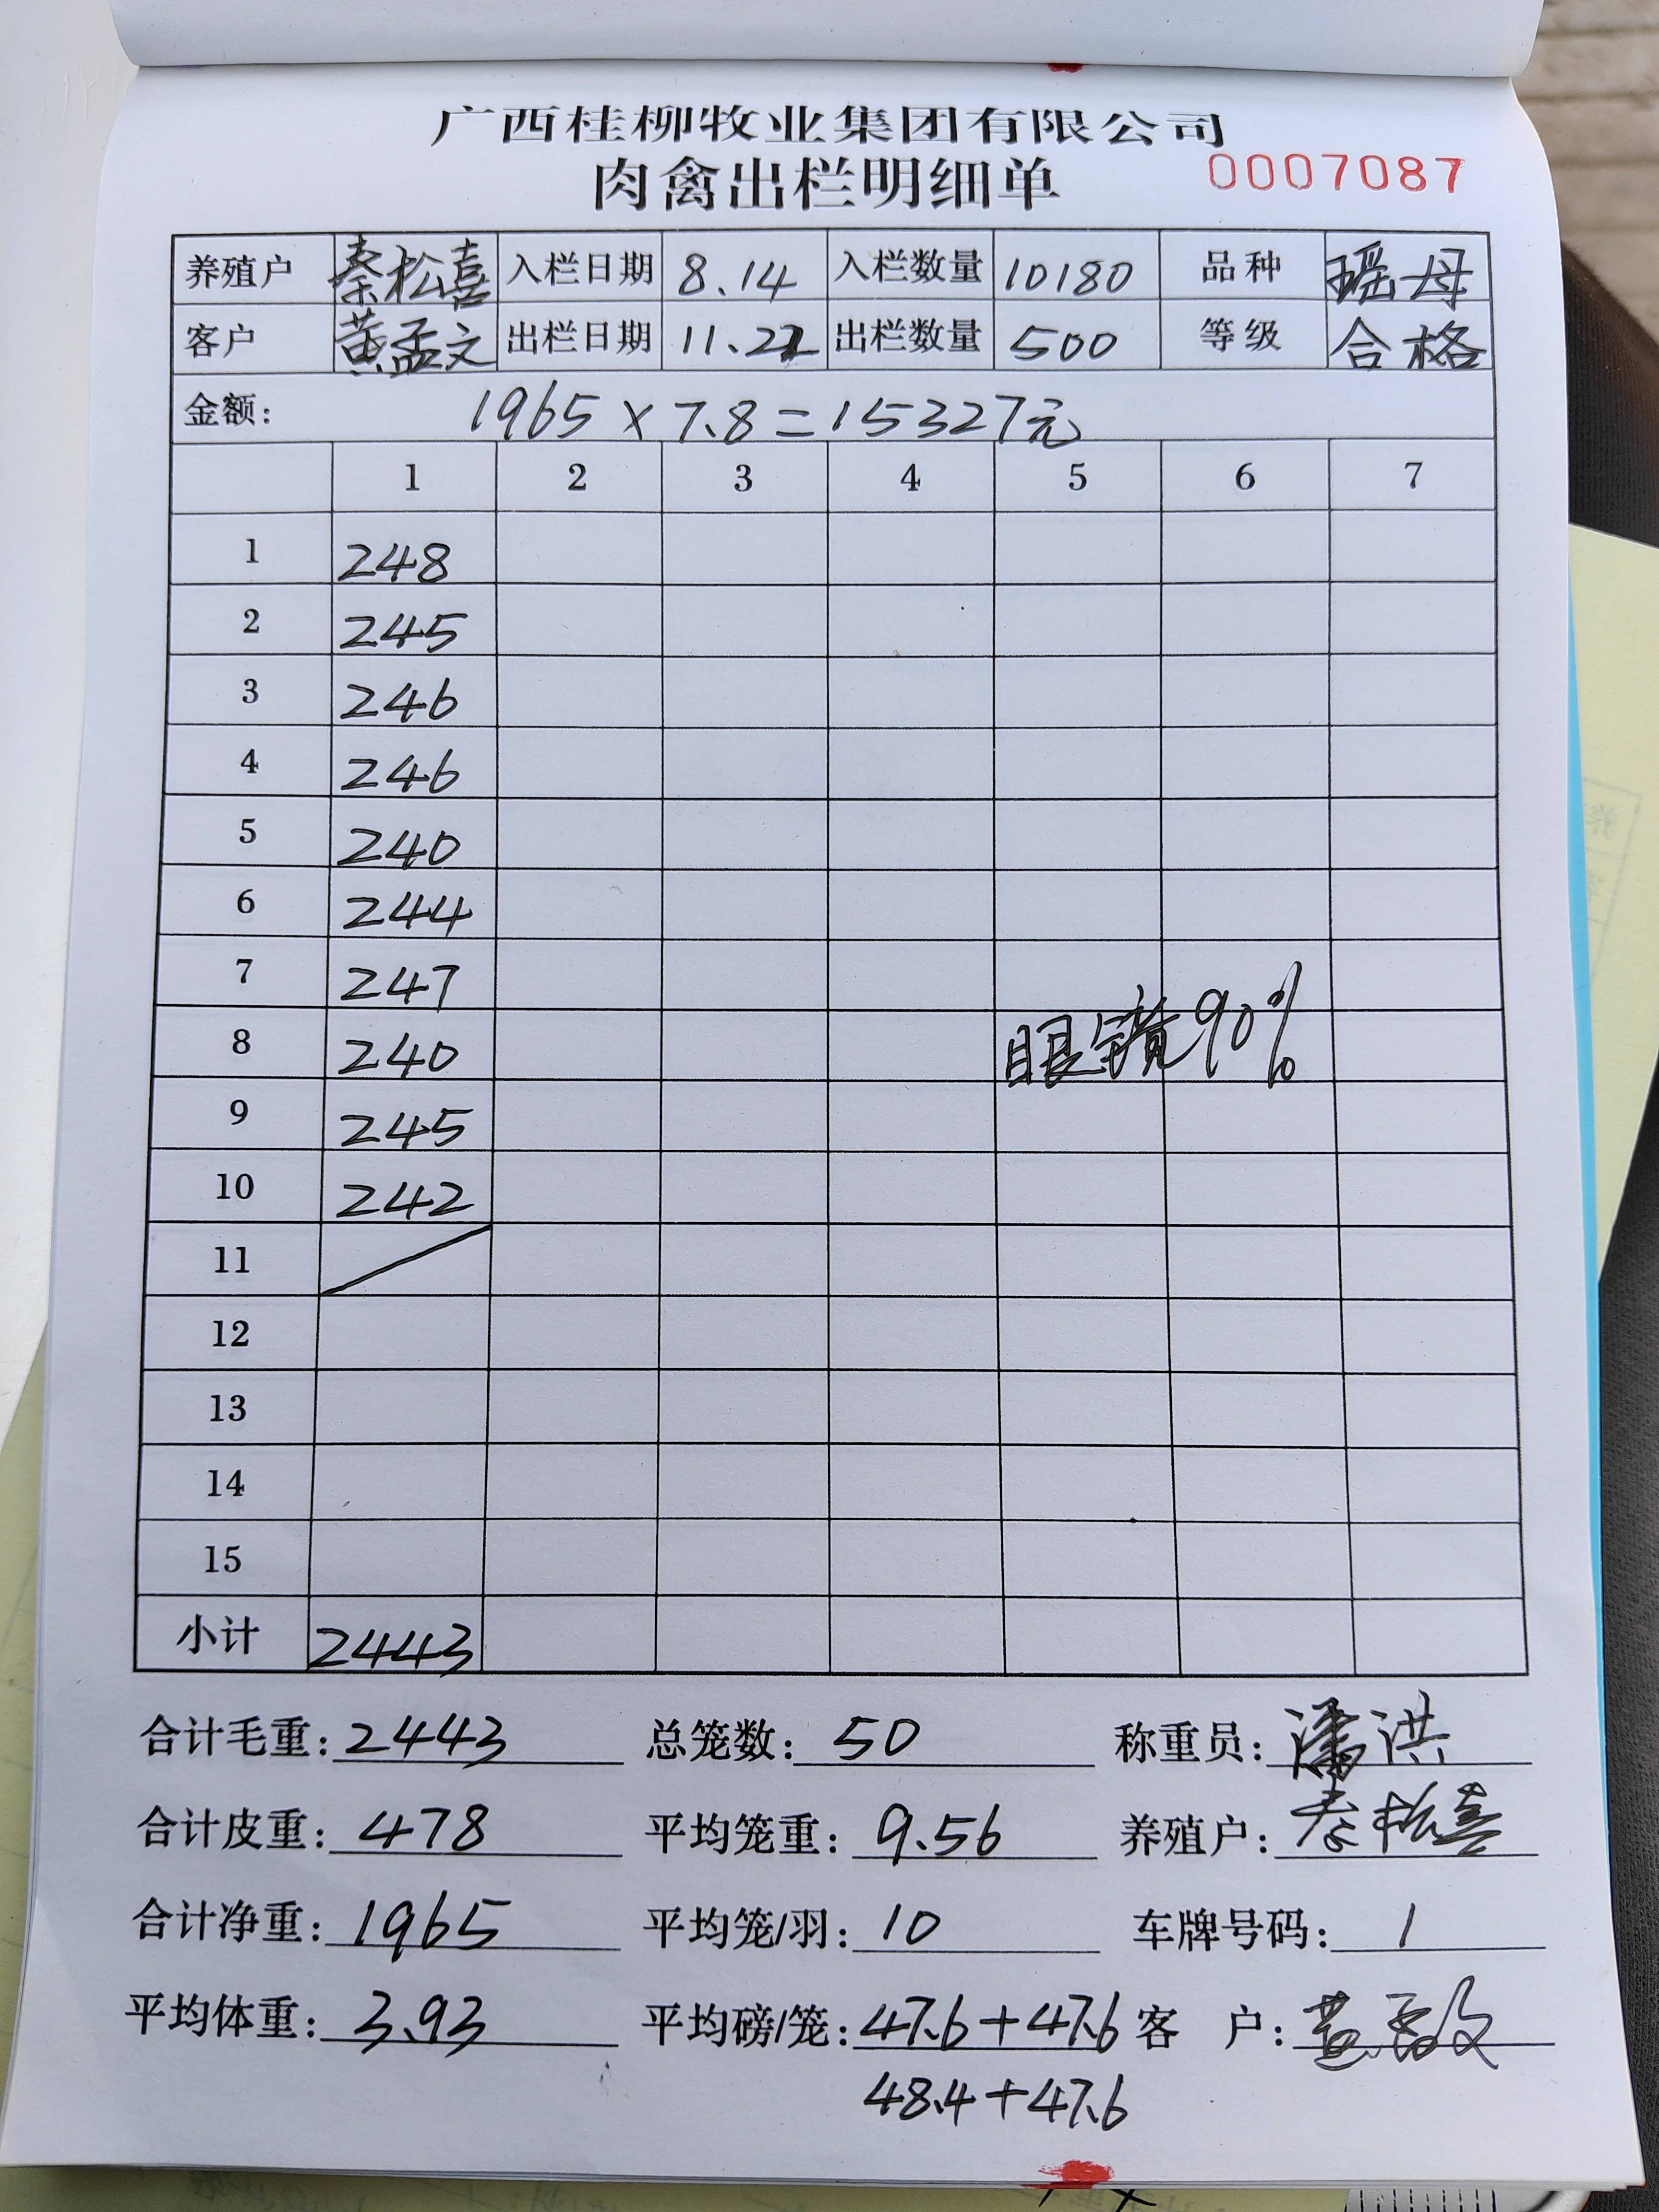 广西桂柳牧业集团有限公司
肉禽出栏明细单 0007087
养殖户 秦松喜 入栏日期 8.14 入栏数量 10180 品种 瑶母
客户 黄孟文 出栏日期 11.22 出栏数量 500 等级 合格
金额: 1965×7.8=15327元
1 2 3 4 5 6 7
1 248
2 245
3 246
4 246
5 240
6 244
7 247
8 240 眼镜90%
9 245
10 242
11
12
13
14
15
小计 2443
合计毛重: 2443 总笼数: 50 称重员: 潘洪
合计皮重: 478 平均笼重: 9.56 养殖户: 秦松喜
合计净重: 1965 平均笼/羽: 10 车牌号码: 1
平均体重: 3.93 平均磅/笼: 47.6+47.6 客 户: 黄孟文
48.4+47.6